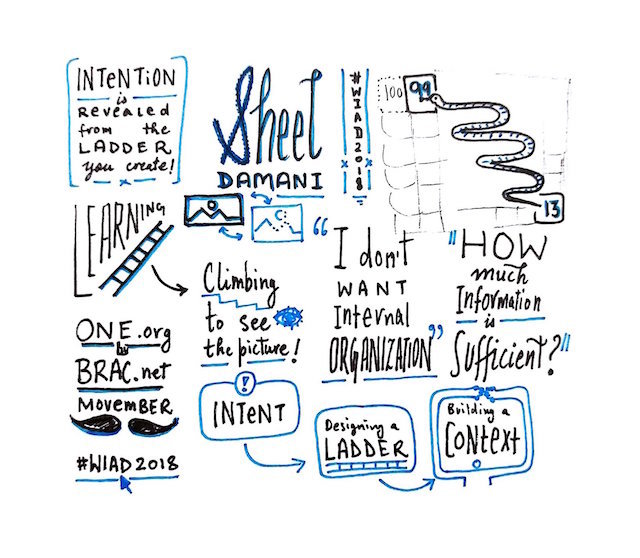 INTENTION
is
Revealed
from the
LADDER
you create!
Sheel
DAMANI
#WIAD2018
100
99
13
LEARNING
Climbing
to see
the picture!
“I don't
WANT
Internal
ORGANIZATION”
"HOW
much
Information
is
Sufficient?"
ONE.org
by
BRAC.net
MOVEMBER
#WIAD2018
INTENT
Designing a
LADDER
Building a
CONTEXT